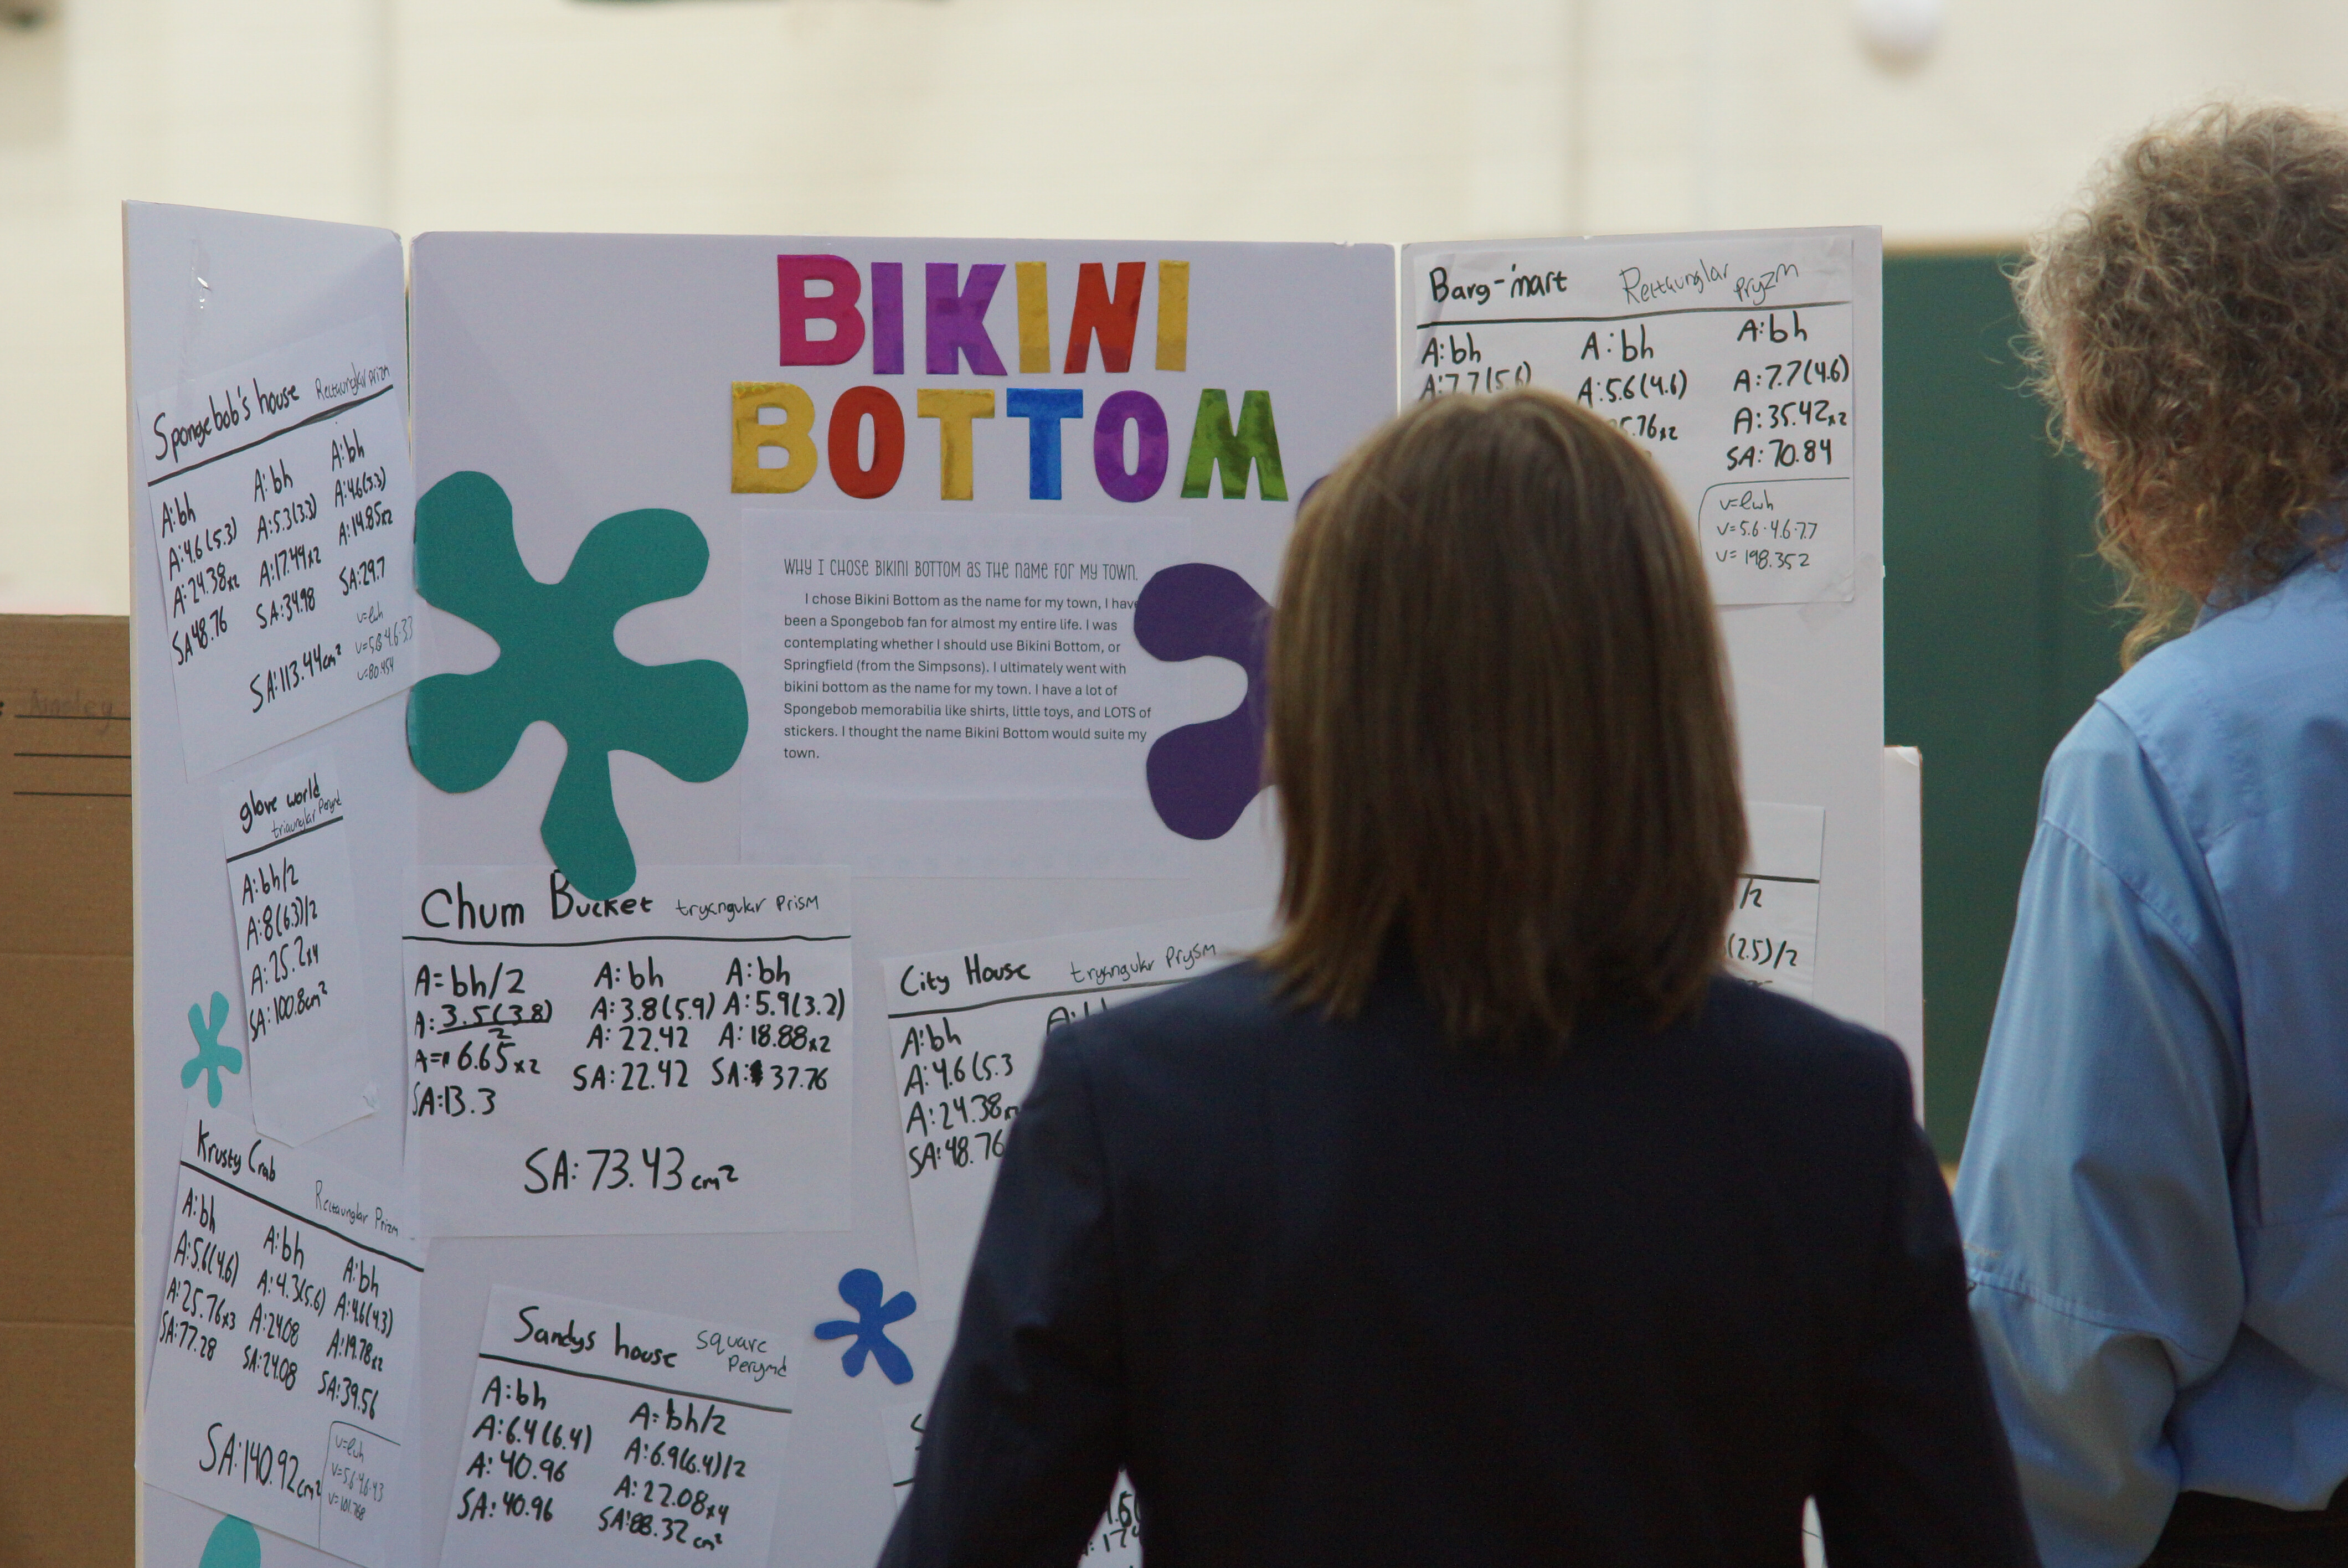 BIKINI
BOTTOM
WHY I CHOSE BIKINI BOTTOM AS THE NAME FOR MY TOWN.
I chose Bikini Bottom as the name for my town, I have
been a Spongebob fan for almost my entire life. I was
contemplating whether I should use Bikini Bottom, or
Springfield (from the Simpsons). I ultimately went with
bikini bottom as the name for my town. I have a lot of
Spongebob memorabilia like shirts, little toys, and LOTS of
stickers. I thought the name Bikini Bottom would suite my
town.
Spongebob's house Rectaunglar prizm
A:bh A:bh A:bh
A:4.6(5.3) A:5.3(3.3) A:4.6(3.3)
A:24.38x2 A:17.49x2 A:14.85x2
SA48.76 SA:34.98 SA:29.7
SA:113.44cm²
v=lwh
v=80.454
glove world
A:bh/2
A:8(6.3)/2
A:25.2x4
SA:100.8cm²
Krusty Crab Rectaunglar Prizm
A:bh A:bh A:bh
A:5.6(4.6) A:4.3(5.6) A:4.6(4.3)
A:25.76x3 A:24.08 A:19.78x2
SA:77.28 SA:24.08 SA:39.56
SA:140.92cm²
v=lwh
v=5.6·4.6·4.3
v=101.768
Chum Bucket tryangular Prism
A=bh/2 A:bh A:bh
A:3.5(3.8)/2 A:3.8(5.9) A:5.9(3.2)
A=6.65x2 A:22.42 A:18.88x2
SA:13.3 SA:22.42 SA:37.76
SA:73.43cm²
Sandys house square Perymd
A:bh A=bh/2
A:6.4(6.4) A:6.9(6.4)/2
A:40.96 A:22.08x4
SA:40.96 SA:88.32cm²
City House tryangular Prysm
A:bh
A:4.6(5.3
A:24.38
SA:48.76
Barg-'mart Rectaunglar Pryzm
A:bh A:bh A:bh
A:7.7(5.6) A:5.6(4.6) A:7.7(4.6)
5.76x2 A:35.42x2
SA:70.84
v=lwh
v=5.6·4.6·7.7
v=198.352
/2
(2.5)/2